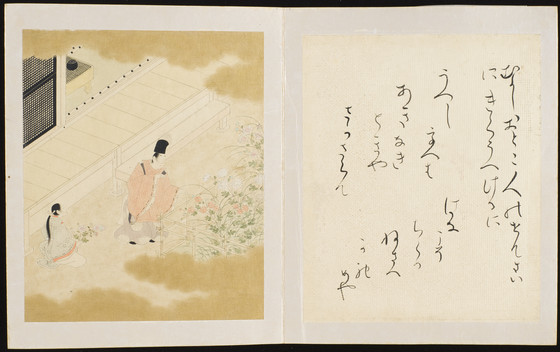 むかしおとこ人のせんさい
にきくうへけるに
うへしうへは
あきなき
ときや
さかさらん
はな
こそ
ちらめ
ねさへ
かれ
めや